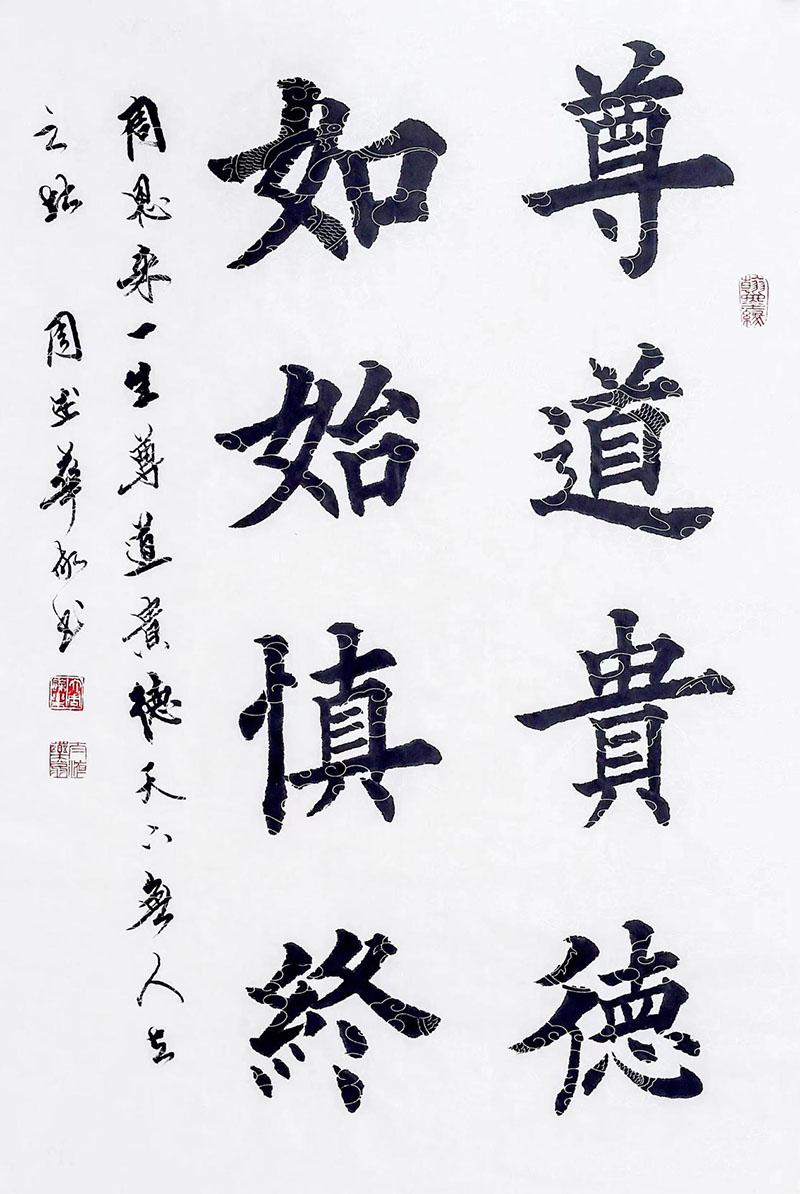 尊道貴德
如始慎終
周恩来一生尊道貴德天下無人
之 周 華敬书
翰墨緣